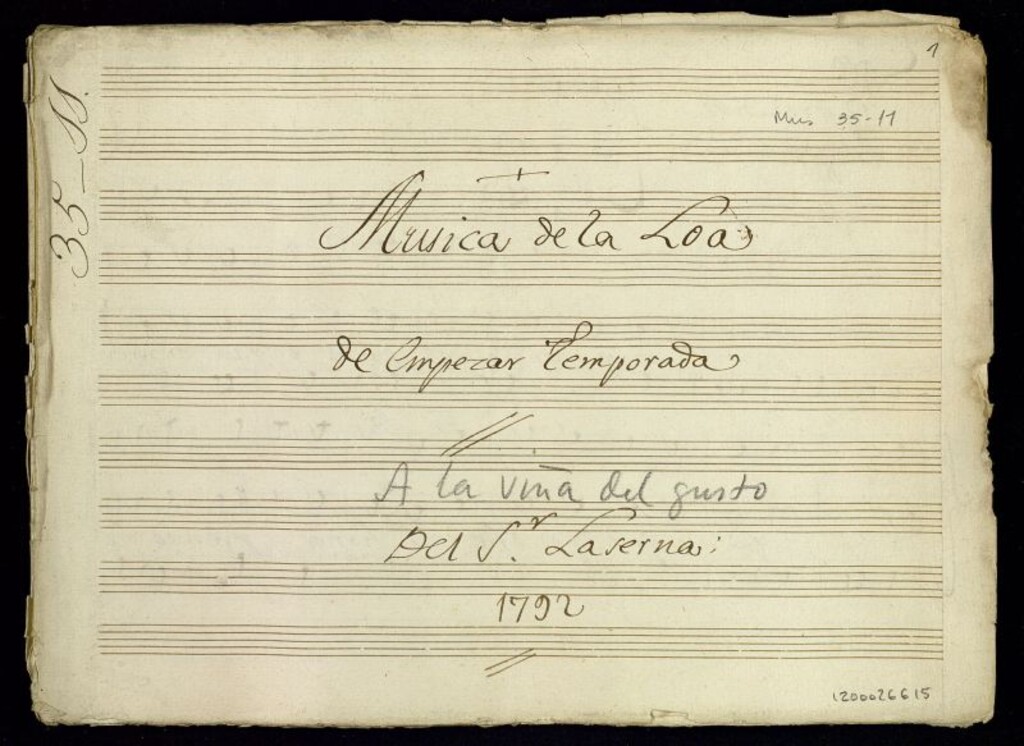 1
Mus 35-11
35-11.
Musica de la Loa
de Empezar Temporada
A la viña del gusto
Del S.r Laserna:
1792
1200026615